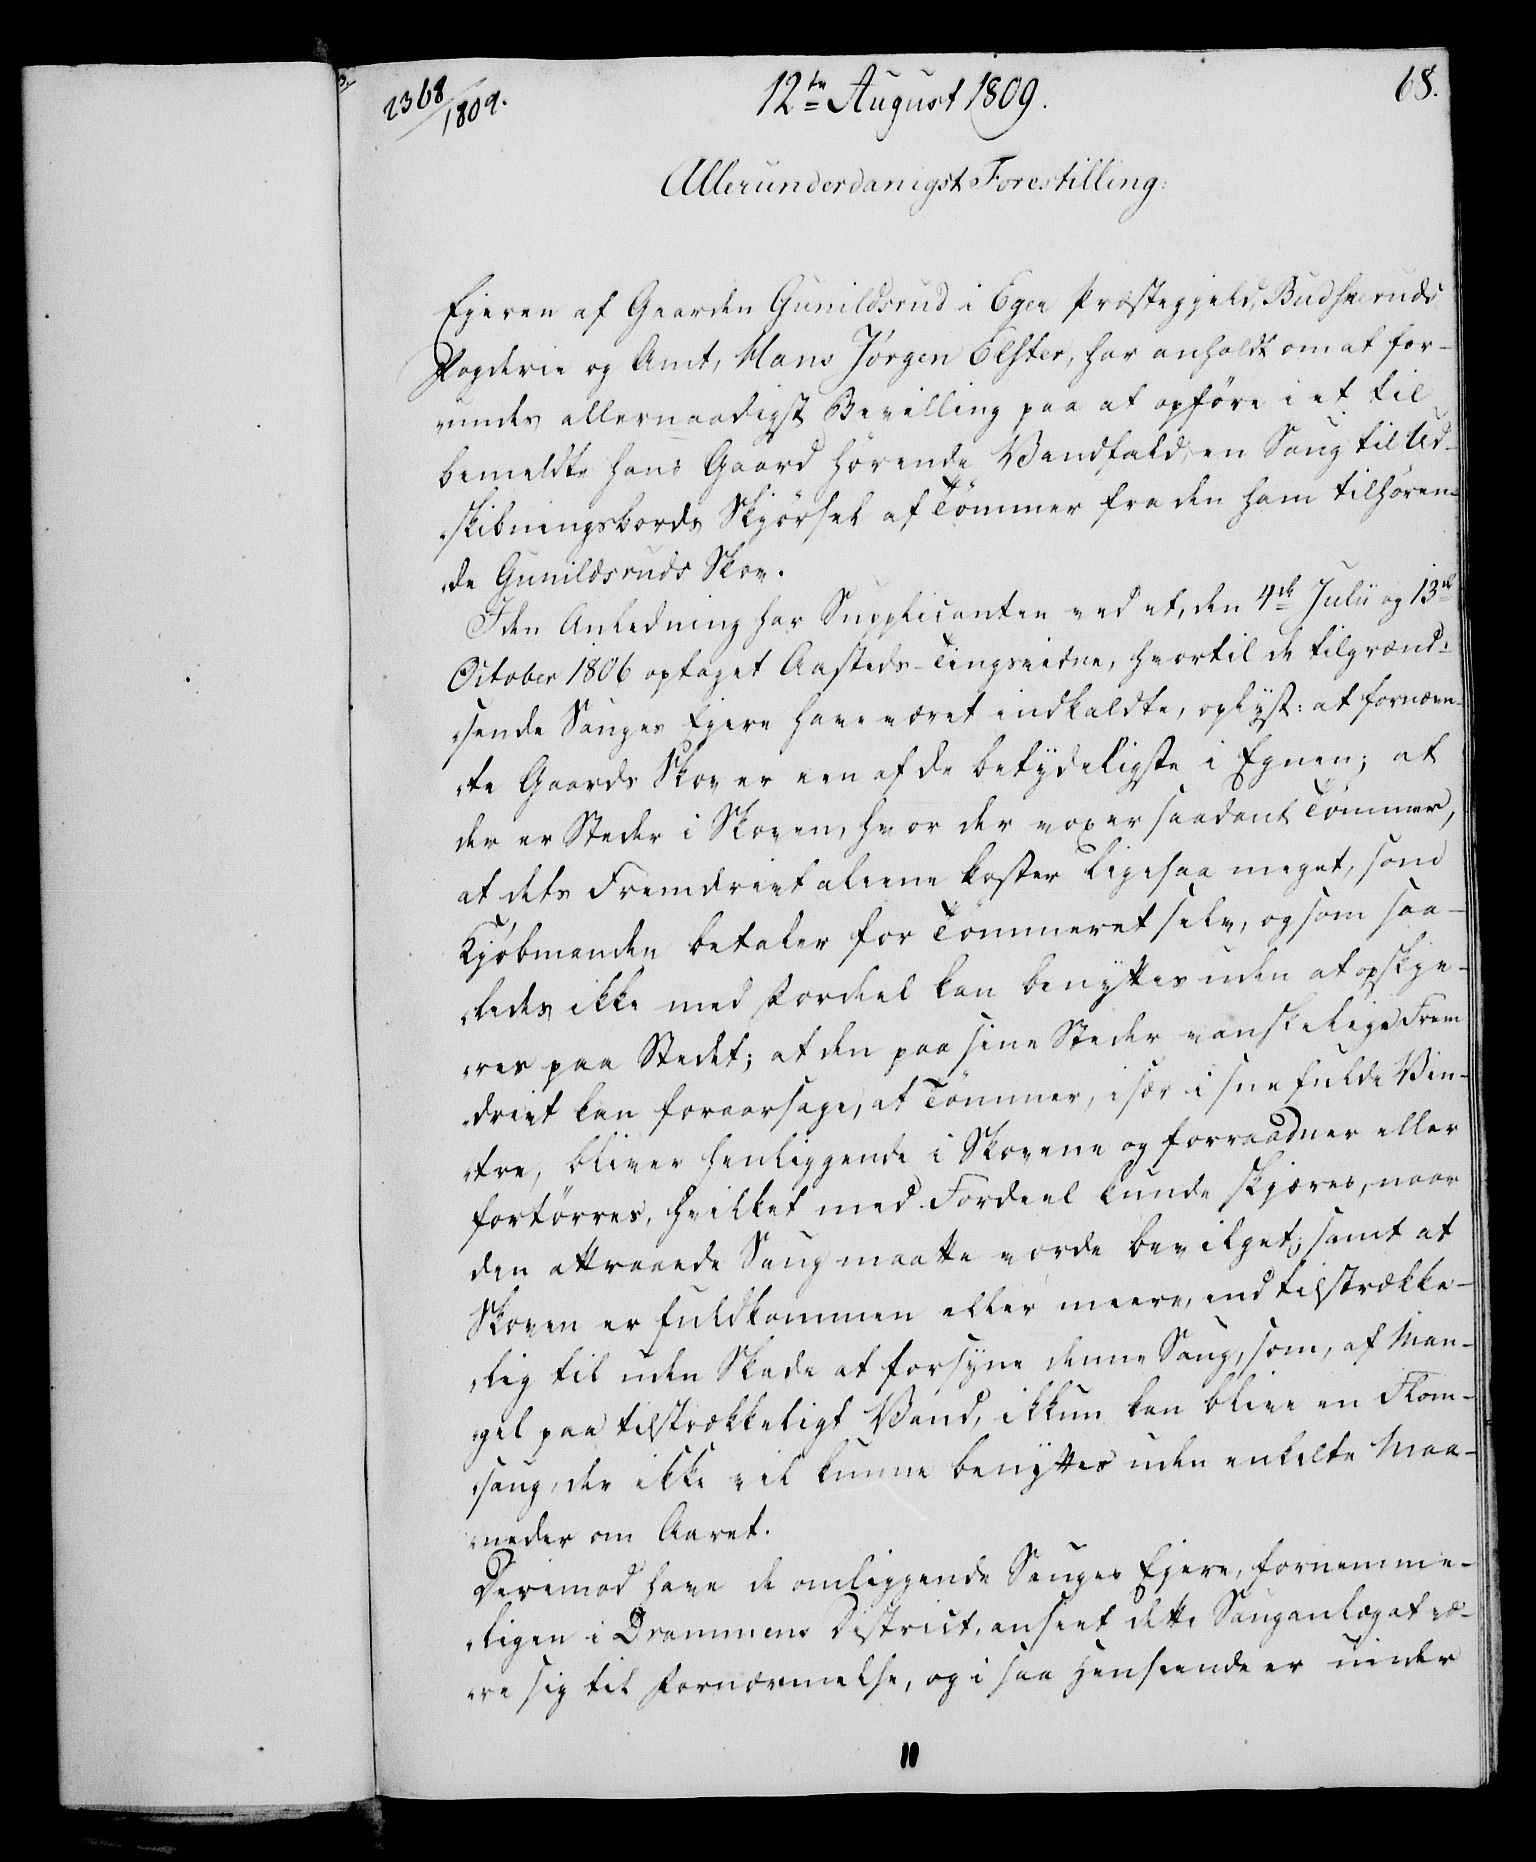 2368/1809.
12te August 1809.
68.
Allerunderdanigst Forestilling:
Ejeren af Gaarden Gunildsrud i Eger Præstegjeld, Budsheruds
Fogderie og Amt, Hans Jørgen Elster, har anholdt om at for-
undes allernaadigst Bevilling paa at opføre i et til
bemeldte hans Gaard hørende Vandfald, en Saug til Ud-
skibningsbords Skjørsel af Tømmer fra den ham tilhøren-
de Gunildsruds Skov.
I den Anledning har Supplicanten ved et, den 4de Julii og 13de
October 1806 optaget Aasteds-Tingsvidne, hvortil de tilgrænd-
sende Sauges Ejere have været indkaldte, oplyst: at fornævn-
te Gaards Skov er een af de betydeligste i Egnen; at
der er Steder i Skoven, hvor der voxer saadant Tømmer,
at dets Fremdrivt aleene koster ligesaa meget, som
Kjøbmanden betaler for Tømmeret selv, og som saa-
ledes ikke med Fordeel kan benyttes uden at opskjæ-
res paa Stedet; at den paa sine Steder vanskelige Frem
drivt kan foraarsage, at Tømmer, især i sneefulde Vin-
tre, bliver henliggende i Skovene og forraadner eller
fortørres, hvilket med Fordeel kunde skjæres, naar
den attraaede Saug maatte vorde bevilget; samt at
Skoven er fuldkommen eller meere, end tilstrække-
lig til uden Skade at forsyne denne Saug, som, af Man-
gel paa tilstrækkeligt Vand, ikkun kan blive en Flom-
saug, der ikke vil kunne benyttes uden enkelte Maa-
neder om Aaret.
Derimod have de omliggende Sauges Ejere, fornemme-
ligen i Drammens District, anseet dette Sauganlæg at væ-
re sig til Fornærmelse, og i saa Henseende er under
11